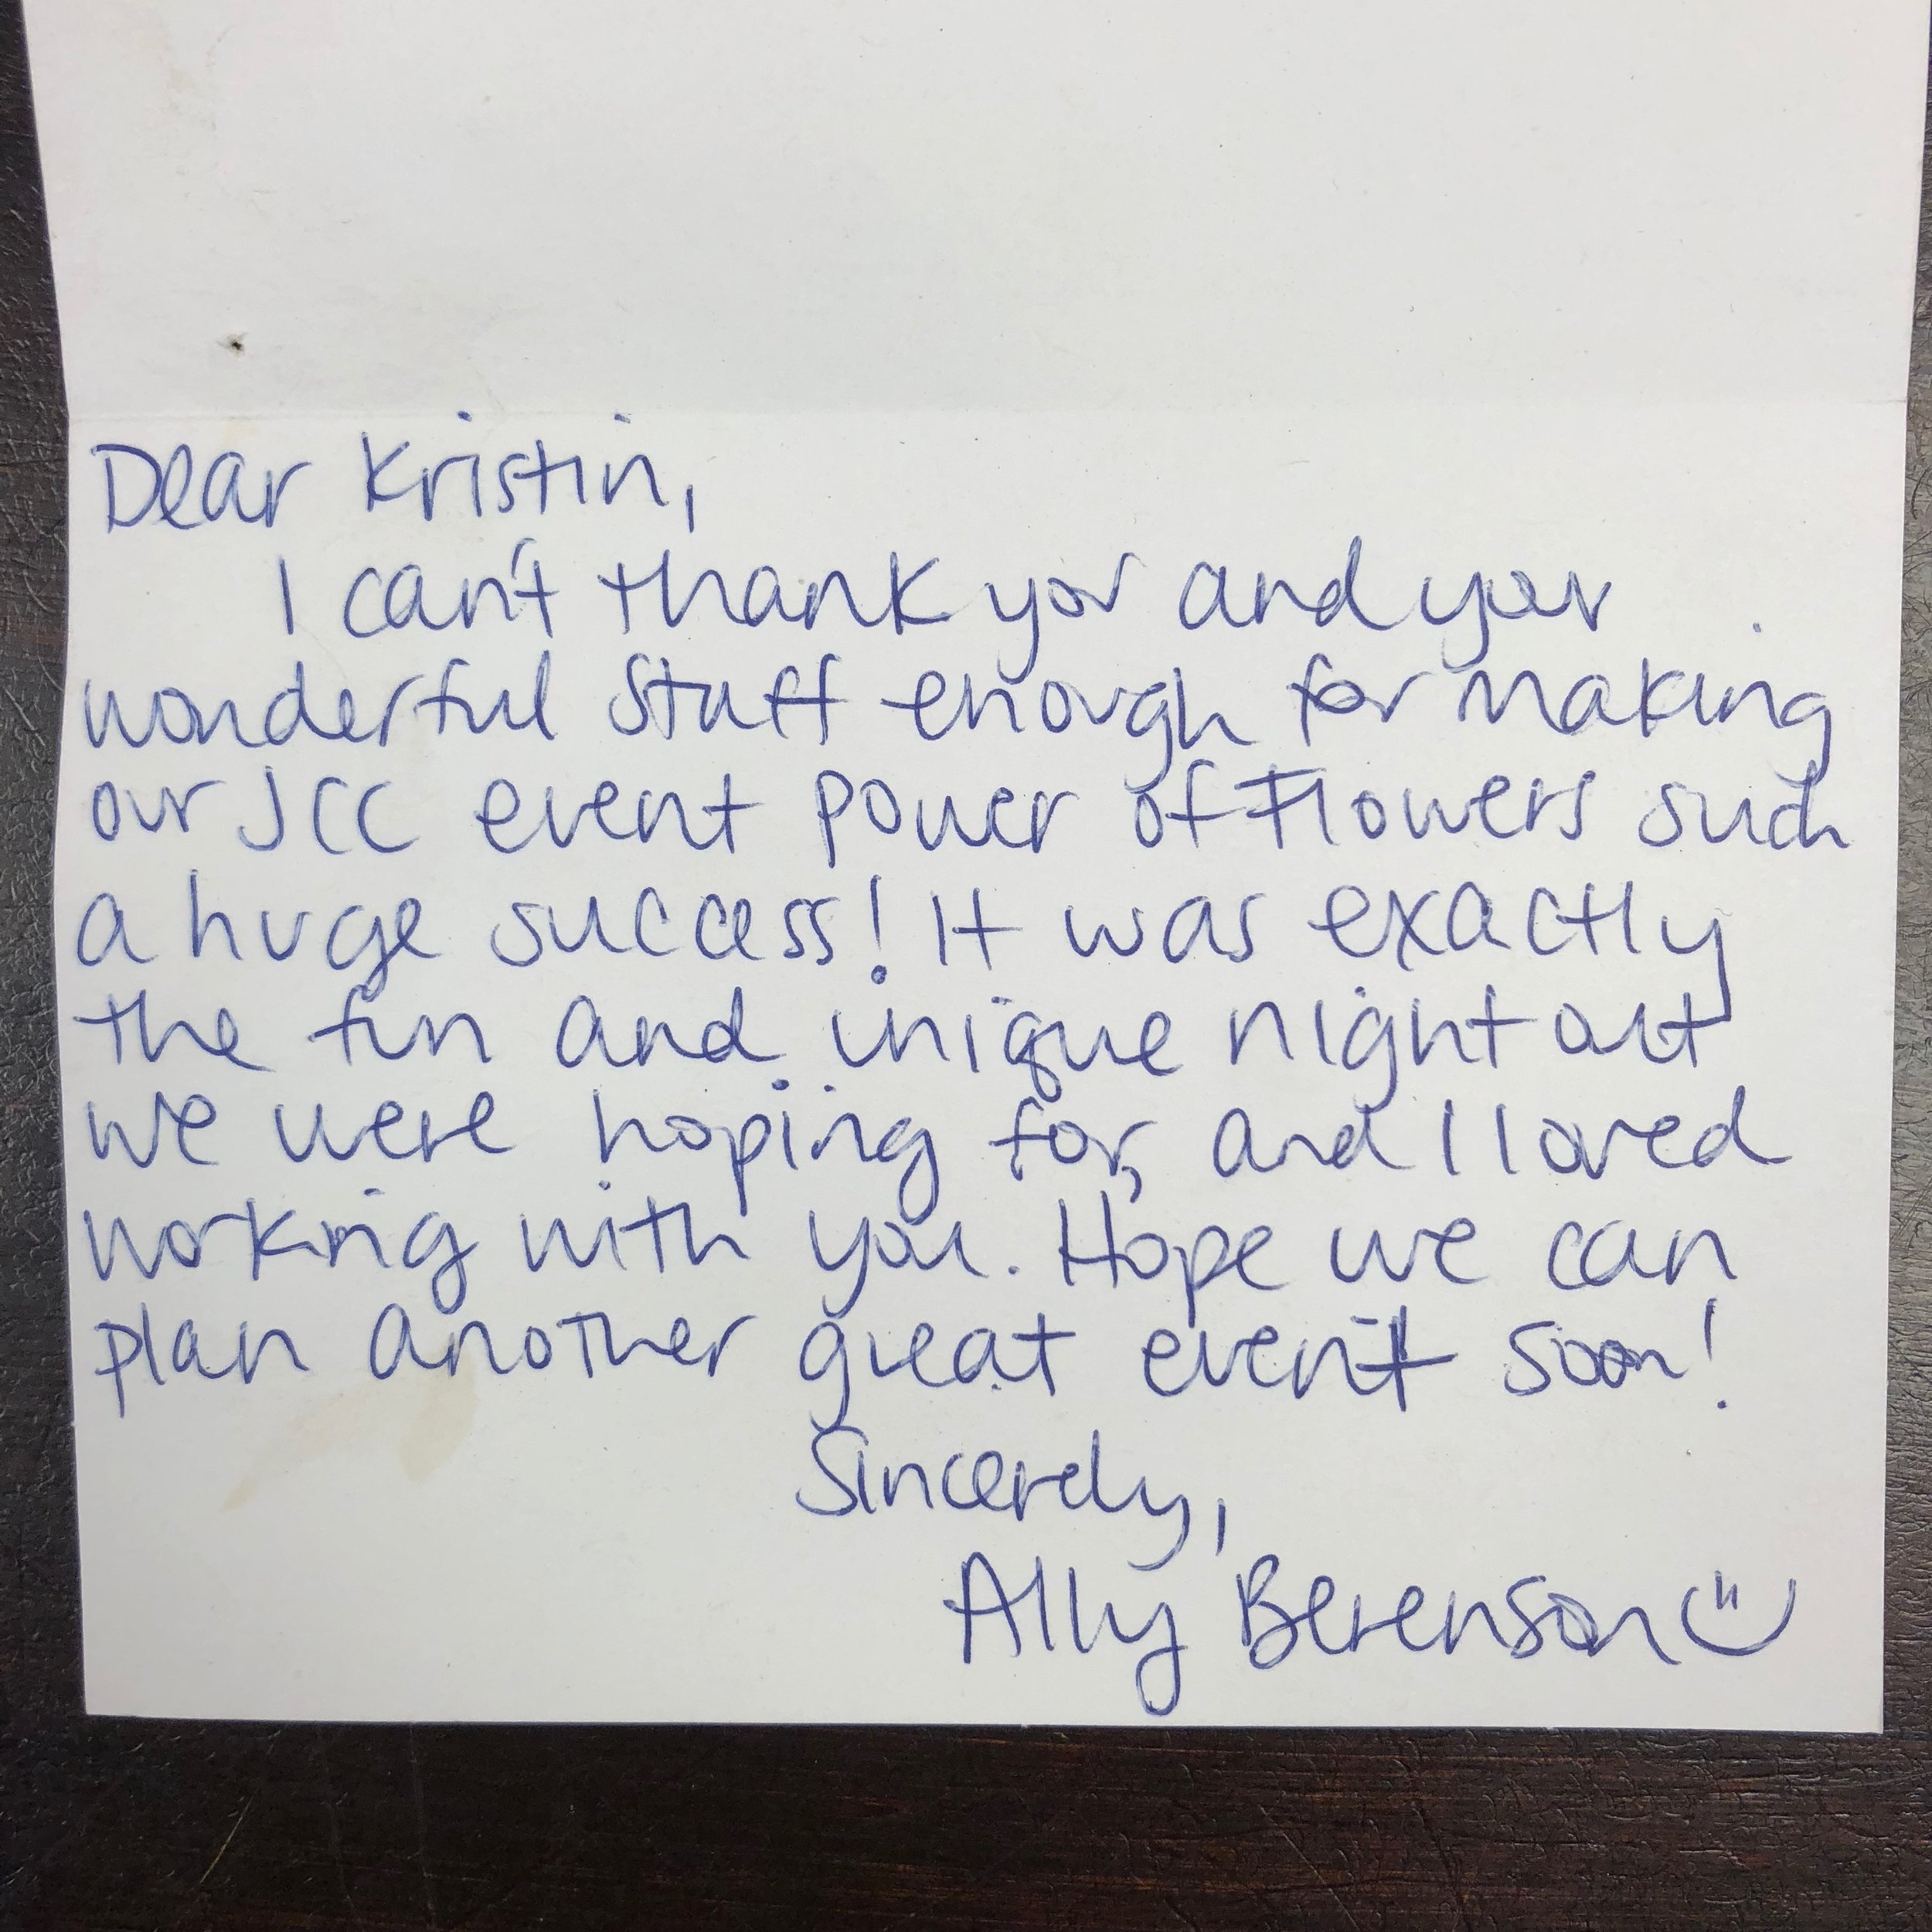 Dear Kristin,
I can't thank you and your
wonderful staff enough for making
our JCC event Power of Flowers such
a huge success! It was exactly
the fun and unique night out
we were hoping for, and I loved
working with you. Hope we can
plan another great event soon!
Sincerely,
Ally Berenson